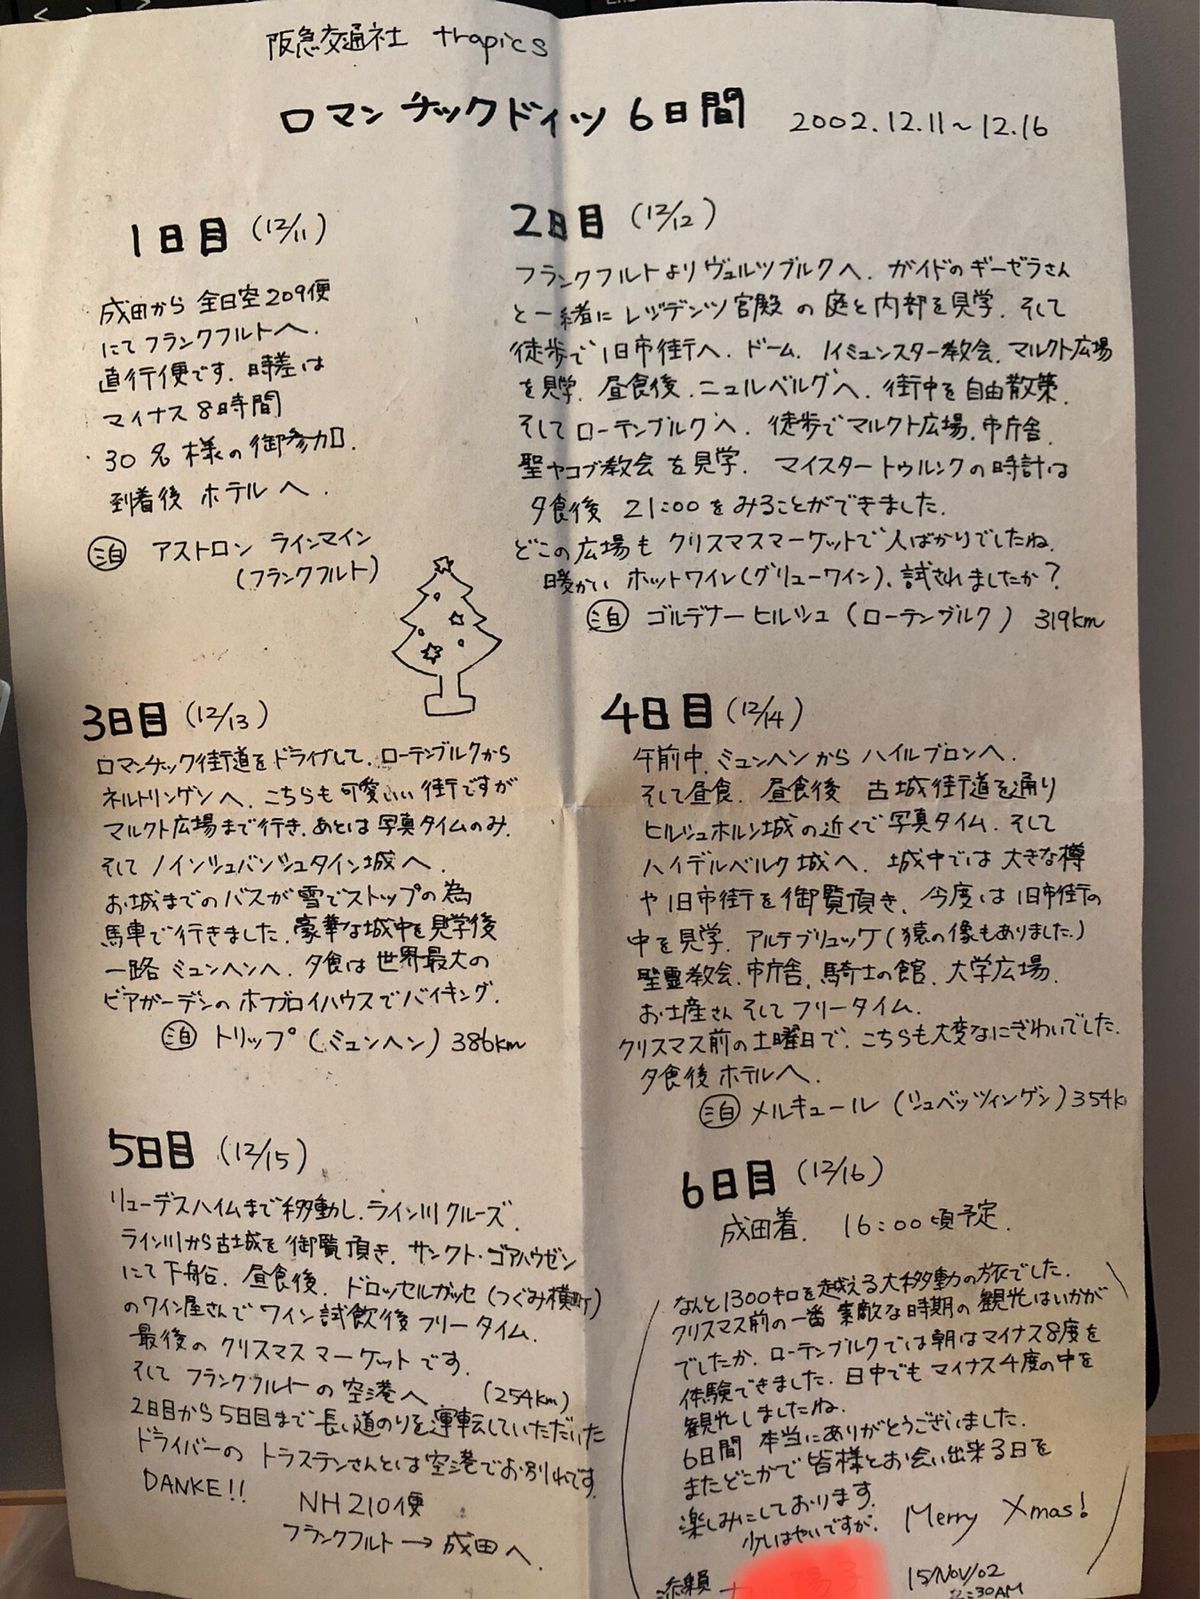 阪急交通社 trapics
ロマンチックドイツ 6日間 2002.12.11~12.16
1日目 (12/11)
成田から 全日空209便
にてフランクフルトへ.
直行便です. 時差は
マイナス8時間
30名様の御参加.
到着後 ホテルへ.
泊 アストロン ラインマイン
(フランクフルト)
2日目 (12/12)
フランクフルトよりヴュルツブルクへ. ガイドのギーゼラさん
と一緒に レジデンツ宮殿 の庭と内部を見学. そして
徒歩で旧市街へ. ドーム. ノイミュンスター教会. マルクト広場
を見学. 昼食後. ニュルベルグへ. 街中を自由散策.
そしてローテンブルクへ. 徒歩でマルクト広場. 市庁舎.
聖ヤコブ教会を見学. マイスタートゥルンクの時計は
夕食後 21:00をみることができました.
どこの広場も クリスマスマーケットで人ばかりでしたね.
暖かい ホットワイン(グリューワイン)、試されましたか?
泊 ゴルデナーヒルシュ (ローテンブルク) 319km
3日目 (12/13)
ロマンチック街道をドライブして. ローテンブルクから
ネルトリンゲンへ. こちらも可愛いい街ですが
マルクト広場まで行き. あとは写真タイムのみ.
そして ノインシュバンシュタイン城へ.
お城までのバスが雪でストップの為
馬車で行きました. 豪華な城中を見学後
一路 ミュンヘンへ. 夕食は世界最大の
ビアガーデンのホフブロイハウスでバイキング.
泊 トリップ (ミュンヘン) 386km
4日目 (12/14)
午前中. ミュンヘンから ハイルブロンへ.
そして昼食. 昼食後 古城街道を通り
ヒルシュホルン城の近くで写真タイム. そして
ハイデルベルク城へ. 城中では大きな樽
や旧市街を御覧頂き、今度は旧市街の
中を見学. アルテブリュック (猿の像もありました.)
聖霊教会. 市庁舎. 騎士の館. 大学広場.
お土産さん そしてフリータイム.
クリスマス前の土曜日で. こちらも大変なにぎわいでした.
夕食後 ホテルへ.
泊 メルキュール (シュベッツィンゲン) 354k
5日目 (12/15)
リューデスハイムまで移動し. ライン川クルーズ.
ライン川から古城を御覧頂き. サンクト・ゴアハウゼン
にて下船. 昼食後. ドロッセルガッセ (つぐみ横町)
のワイン屋さんでワイン試飲後フリータイム.
最後の クリスマスマーケットです.
そして フランクフルトの空港へ (254km)
2日目から5日目まで長い道のりを運転していただいた
ドライバーの トラステンさんとは空港でお別れです.
DANKE!!
NH210便
フランクフルト → 成田へ.
6日目 (12/16)
成田着. 16:00頃予定.
なんと1300キロを越える大移動の旅でした.
クリスマス前の一番 素敵な時期の 観光はいかが
でしたか. ローテンブルクでは朝はマイナス8度を
体験できました. 日中でも マイナス4度の中を
観光しましたね.
6日間 本当にありがとうございました.
またどこかで皆様とお会い出来る日を
楽しみにしております.
少しはやいですが. Merry Xmas!
添乗員
15/NOV/02
:30AM